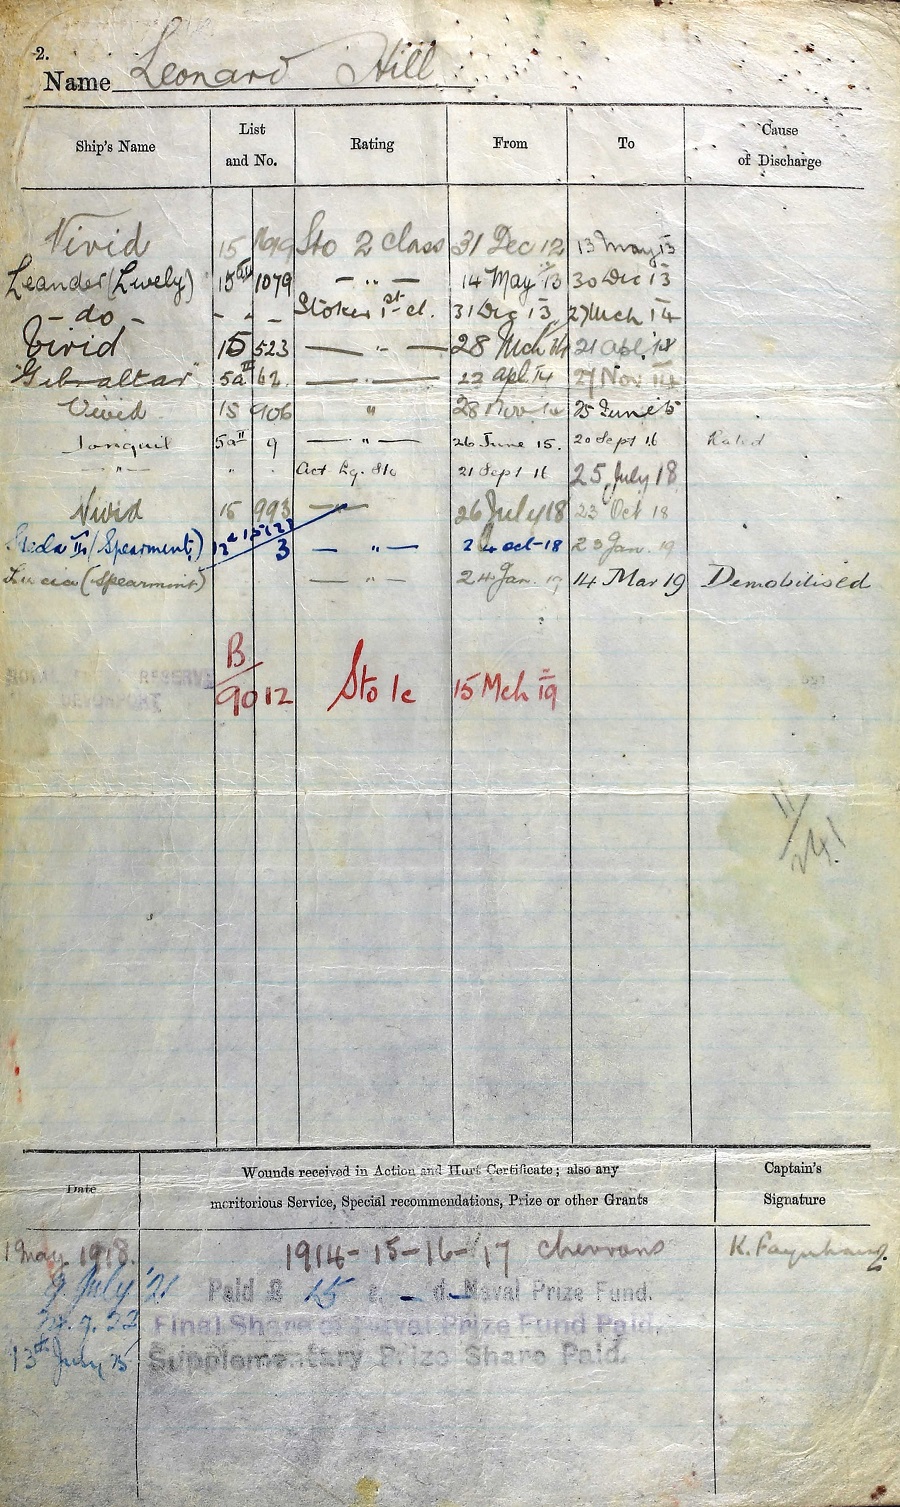 2.
Name Leonard Hill
Ship's Name List and No. Rating From To Cause of Discharge
Vivid 15 Sto 2 Class 31 Dec 12 13 May 13
Leander (Lively) 15 1079 — " — 14 May 13 30 Dec 13
- do - " - Stoker 1st cl. 31 Dec 13 27 Mch 14
Vivid 15 523 — " — 28 Mch 14 21 Apl. 14
"Gibraltar" 5a II 62. — " — 22 apl. 14 27 Nov 14
Vivid 15 906 " 28 Nov 14 25 June 15
Jonquil 5a II 9 — " — 26 June 15. 20 Sept 16 Rated
— " — " " Act Lg. Sto 21 Sept 16 25 July 18
Vivid 15 993 — " — 26 July 18 23 Oct 18
(Spearmint) 3 — " — 24 oct-18 23 Jan. 19
Lucia (Spearmint) — " — 24 Jan. 19 14 Mar 19 Demobilised
B/9012 Sto 1c 15 Mch 19
RESERVE
DEVONPORT
11/
Date Wounds received in Action and Hurt Certificate; also any meritorious Service, Special recommendations, Prize or other Grants Captain's Signature
1 May 1918. 1914-15-16-17 chevrons K.
9. July '21 Paid £ 15 s. — d. — Naval Prize Fund.
9. 22 Final Share of Naval Prize Fund Paid.
13th July 25 Supplementary Prize Share Paid.